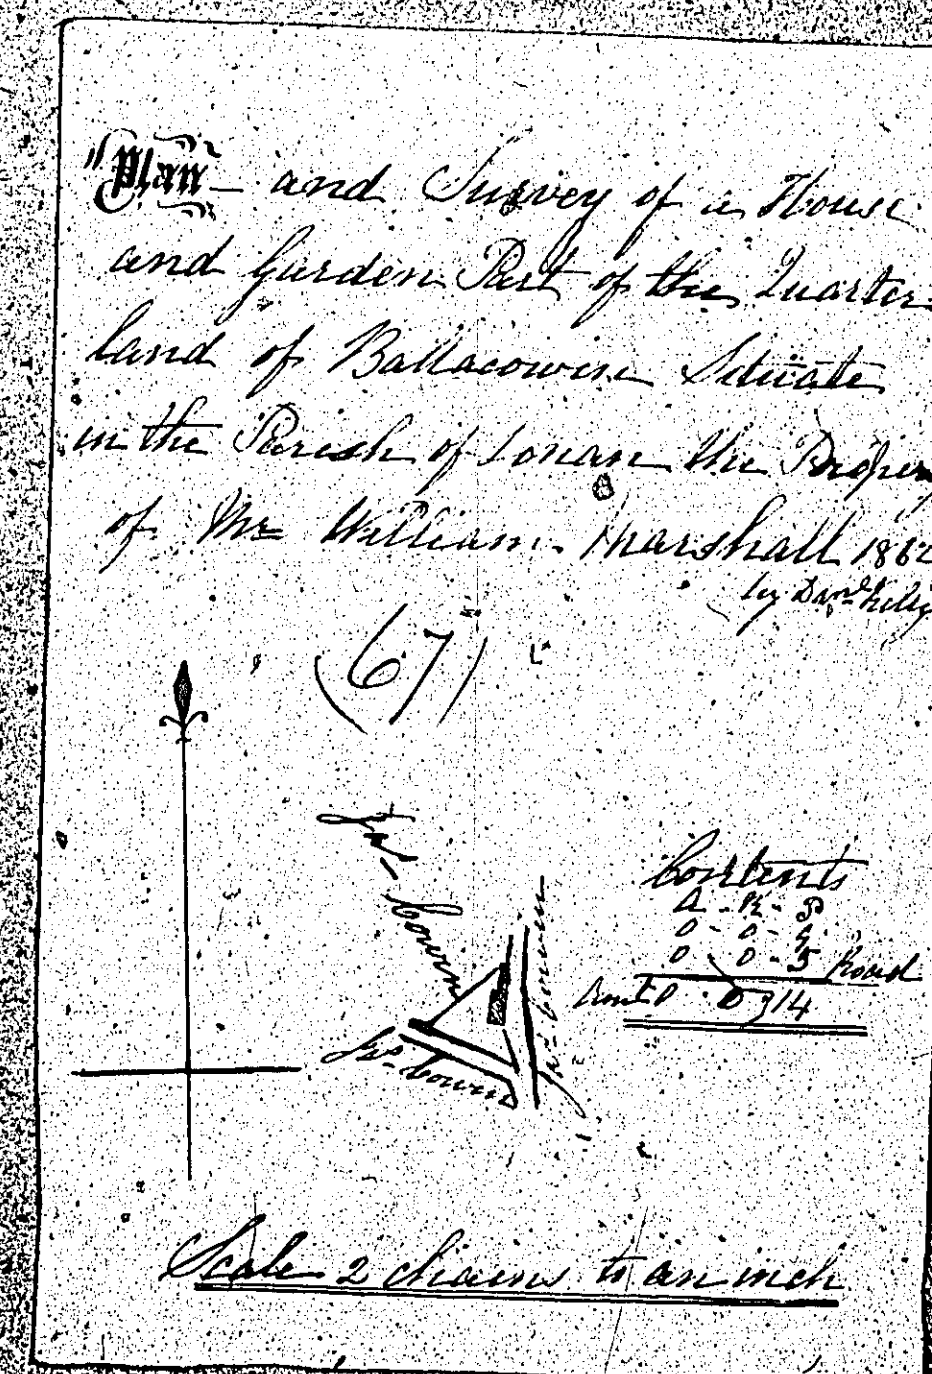 "Plan - and Survey of a House
and Garden Part of the Quarter
land of Ballacowin Situate
in the Parish of Lonan the Proper
of Mr William Marshall 1862
by Danl Kelly
(67)
Jas. Cowin
Jas. Cowin
Jas. Cowin
Contents
A - R - P
0 - 0 - 9
0 0 - 5 Road
Amt 0 . 0 , 14
Scale 2 chains to an inch